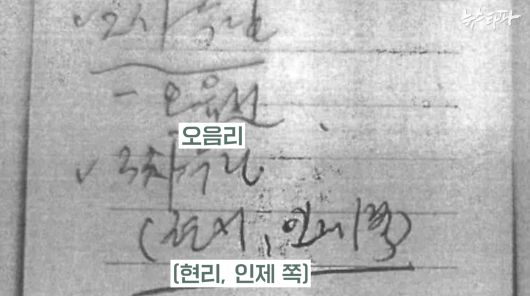 뉴스타파
√2차
- 오음리
오음리
√3차
(현리, 인제쪽)
(현리, 인제 쪽)